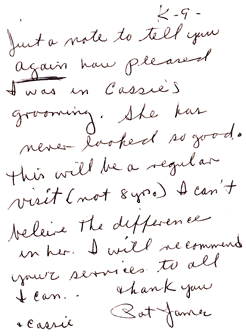 K-9-
Just a note to tell you
again how pleased
I was in Cassie's
grooming. She has
never looked so good.
This will be a regular
visit (not 8 yrs.) I can't
beleive the difference
in her. I will recommend
your services to all
I can.. thank you
Pat
+ Cassie